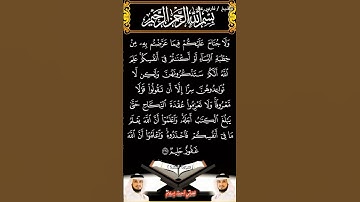 بسم الله الرحمن الرحيم
وَلَا جُنَاحَ عَلَيْكُمْ فِيمَا عَرَّضْتُم بِهِۦ مِنْ
خِطْبَةِ ٱلنِّسَآءِ أَوْ أَكْنَنتُمْ فِىٓ أَنفُسِكُمْ عَلِمَ
ٱللَّهُ أَنَّكُمْ سَتَذْكُرُونَهُنَّ وَلَٰكِن لَّا
تُوَاعِدُوهُنَّ سِرًّا إِلَّآ أَن تَقُولُوا۟ قَوْلًا
مَّعْرُوفًا وَلَا تَعْزِمُوا۟ عُقْدَةَ ٱلنِّكَاحِ حَتَّىٰ
يَبْلُغَ ٱلْكِتَٰبُ أَجَلَهُۥ وَٱعْلَمُوٓا۟ أَنَّ ٱللَّهَ يَعْلَمُ
مَا فِىٓ أَنفُسِكُمْ فَٱحْذَرُوهُ وَٱعْلَمُوٓا۟ أَنَّ ٱللَّهَ
غَفُورٌ حَلِيمٌ